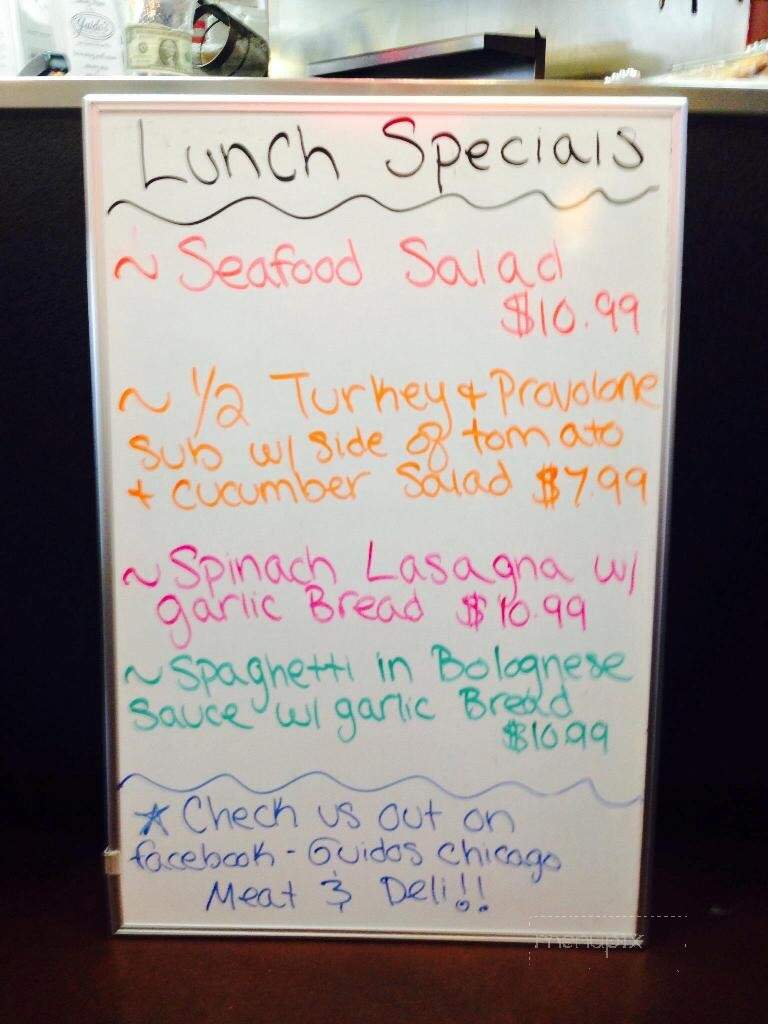 Guido's
Lunch Specials
~ Seafood Salad
$10.99
~ 1/2 Turkey + Provolone
Sub w/ side of tomato
+ cucumber Salad $7.99
~ Spinach Lasagna w/
garlic Bread $10.99
~ Spaghetti in Bolognese
Sauce w/ garlic Bread
$10.99
☆ Check us out on
facebook - Guidos Chicago
Meat & Deli!!
menupix